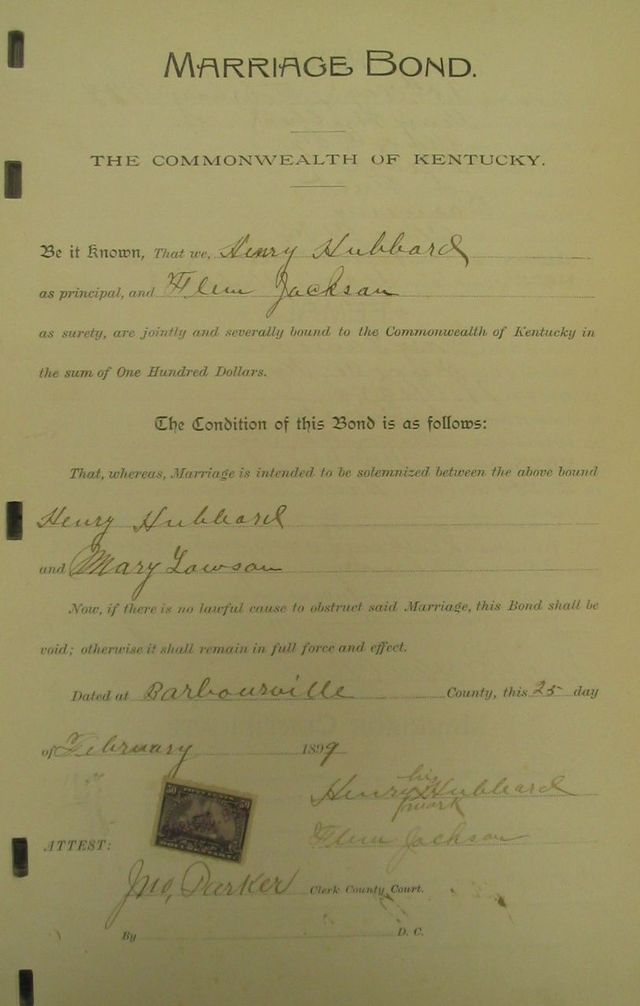 MARRIAGE BOND.
THE COMMONWEALTH OF KENTUCKY.
Be it Known, That we, Henry Hubbard
as principal, and Flem Jackson
as surety, are jointly and severally bound to the Commonwealth of Kentucky in
the sum of One Hundred Dollars.
The Condition of this Bond is as follows:
That, whereas, Marriage is intended to be solemnized between the above bound
Henry Hubbard
and Mary Lawson
Now, if there is no lawful cause to obstruct said Marriage, this Bond shall be
void; otherwise it shall remain in full force and effect.
Dated at Barbourville County, this 25 day
of February 1899
his
Henry X Hubbard
mark
Flem Jackson
50 50
ATTEST:
Jno, Parker Clerk County Court.
By D. C.